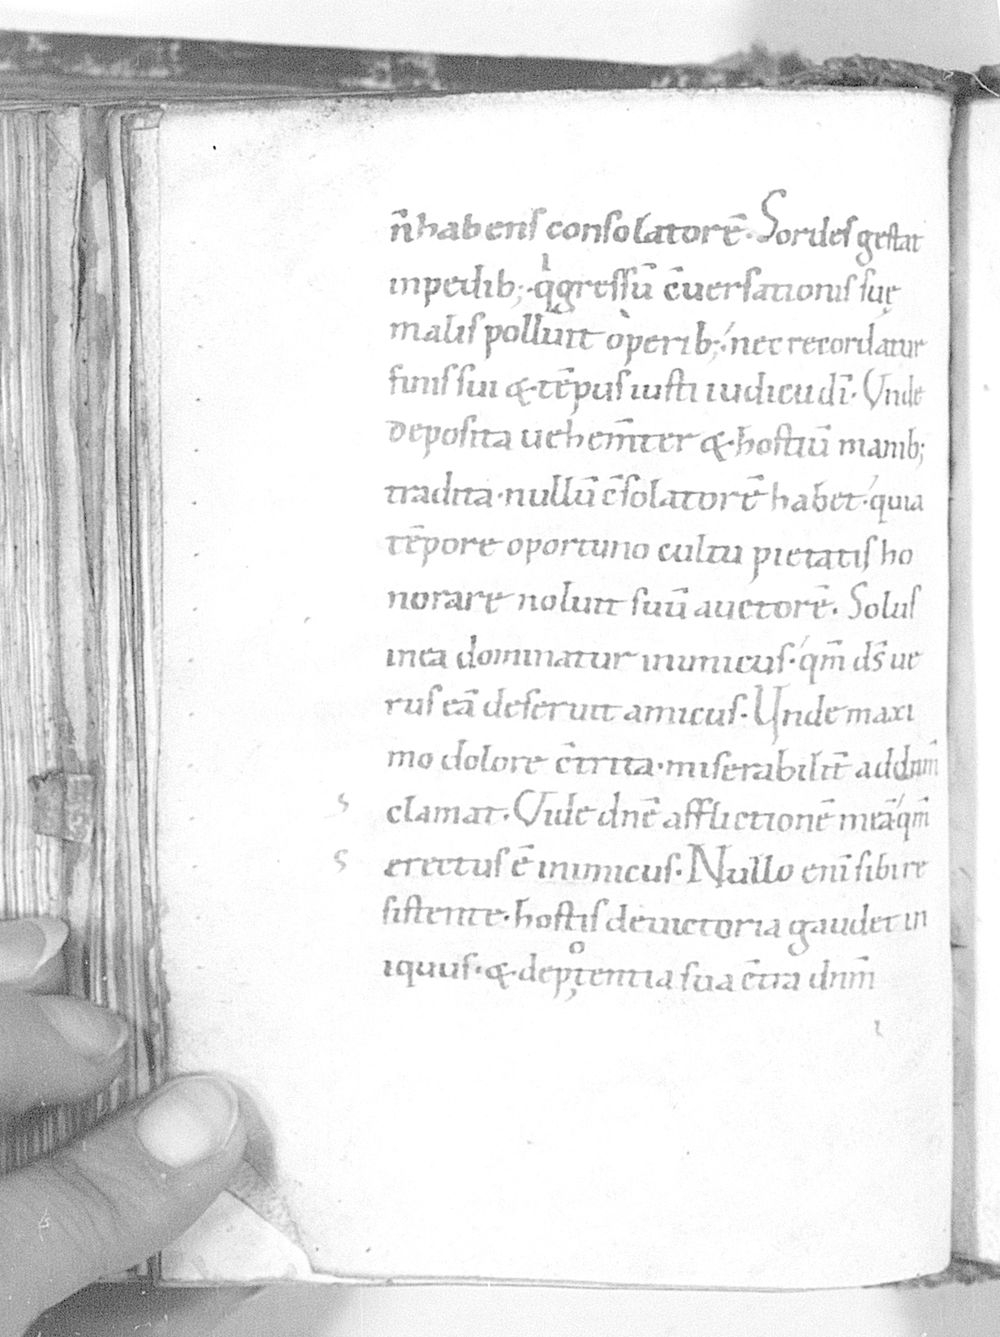 n̄ habens consolatorē. Sordes gestat
in pedib; qͥ gressū c̄uersationis suę
malis polluit operib; nec recordatur
finis sui & tēpus iusti iudicii dī. Unde
deposita uehem̄ter & hostiū manib;
tradita. nullū c̄solatorē habet. quia
tēpore oportuno cultu pietatis ho
norare noluit suū auctorē. Solus
in ea dominatur inimicus. qm̄ ds̄ ue
rus eā deseruit amicus. Unde maxi
mo dolore c̄trita. miserabilit̄ ad dnm̄
clamat. Uide dnē afflictionē meā qm̄
erectus ē inimicus. Nullo enī sibi re
sistente. hostis de uictoria gaudet in
iquus. & de potentia sua c̄tra dnm̄